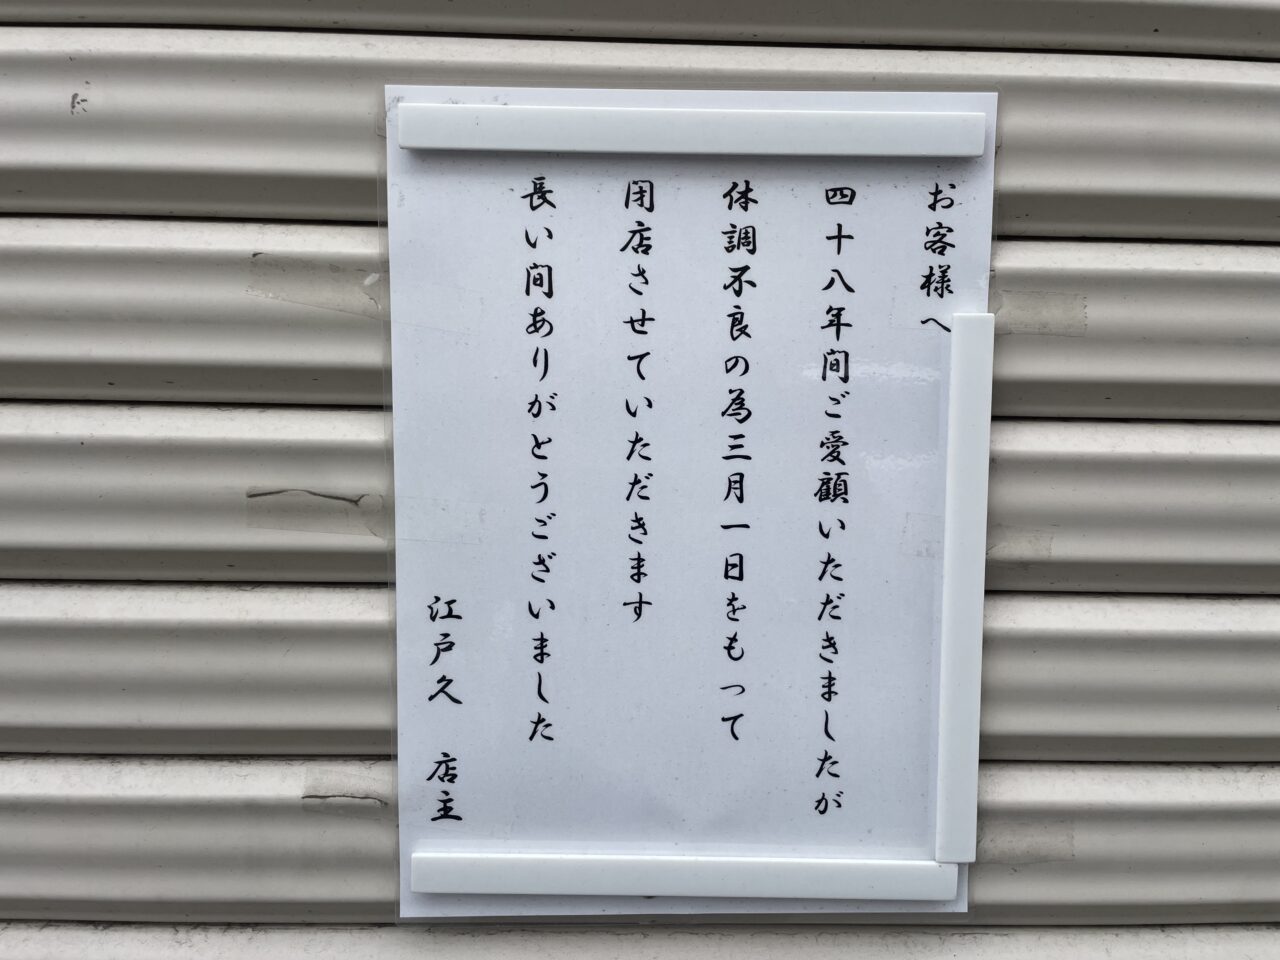 お客様へ
四十八年間ご愛顧いただきましたが
体調不良の為三月一日をもって
閉店させていただきます
長い間ありがとうございました
江戸久　店主